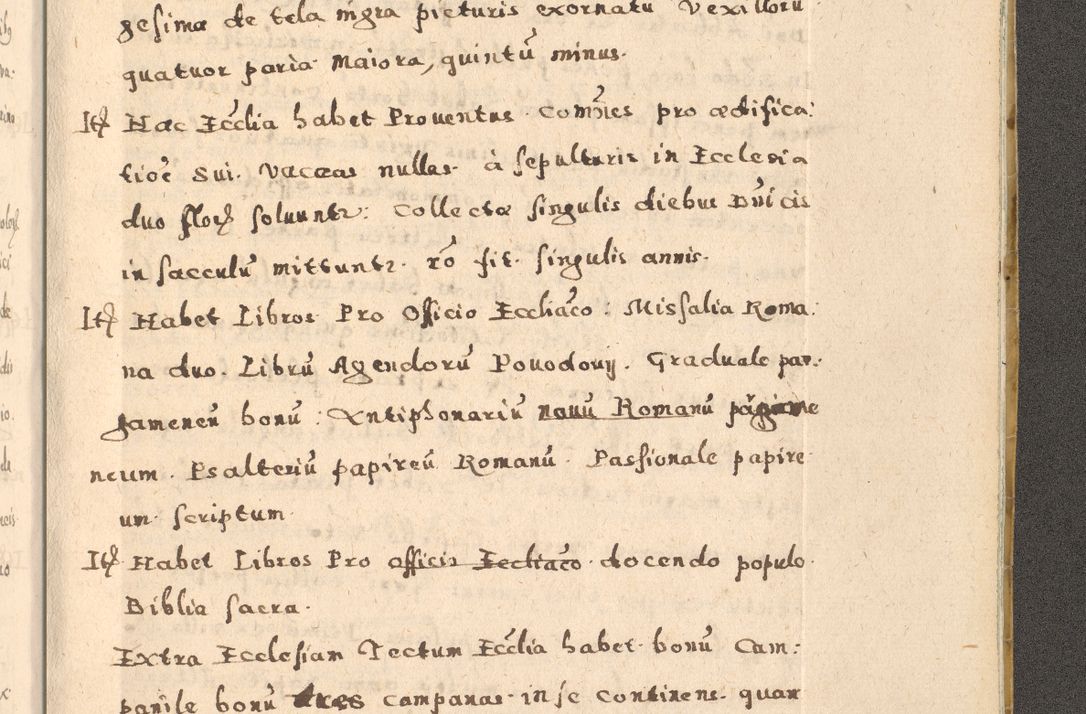 gesimæ de tela nigra picturis exornatu Vexilloru
quatuor paria Maiora, quintū minus.
Itꝫ Hæc Eccĺia habet Prouentus com̄es pro ædifica:
tioē sui. Vaccas nullas. à sepulturis in Ecclesia
duo floꝝ soluuntr: Collectæ singulis diebus Dn̄icis
in sacculū mittuntr. rō fit singulis annis.
Itꝫ Habet Libros Pro Officio Eccliāco: Missalia Roma:
na duo. Librū Agendorū Pouodouij. Graduale par:
gameneū bonū: Antiphonariū nouū Romanū
neum. Psalteriū papireū Romanū. Passionale papire
um scriptum
Itꝫ Habet Libros Pro officis Eccliāco docendo populo
Biblia sacra.
Extra Ecclesiam Tectum Eccĺia habet bonū Cam:
panile bonū tres campanas in se continens quar